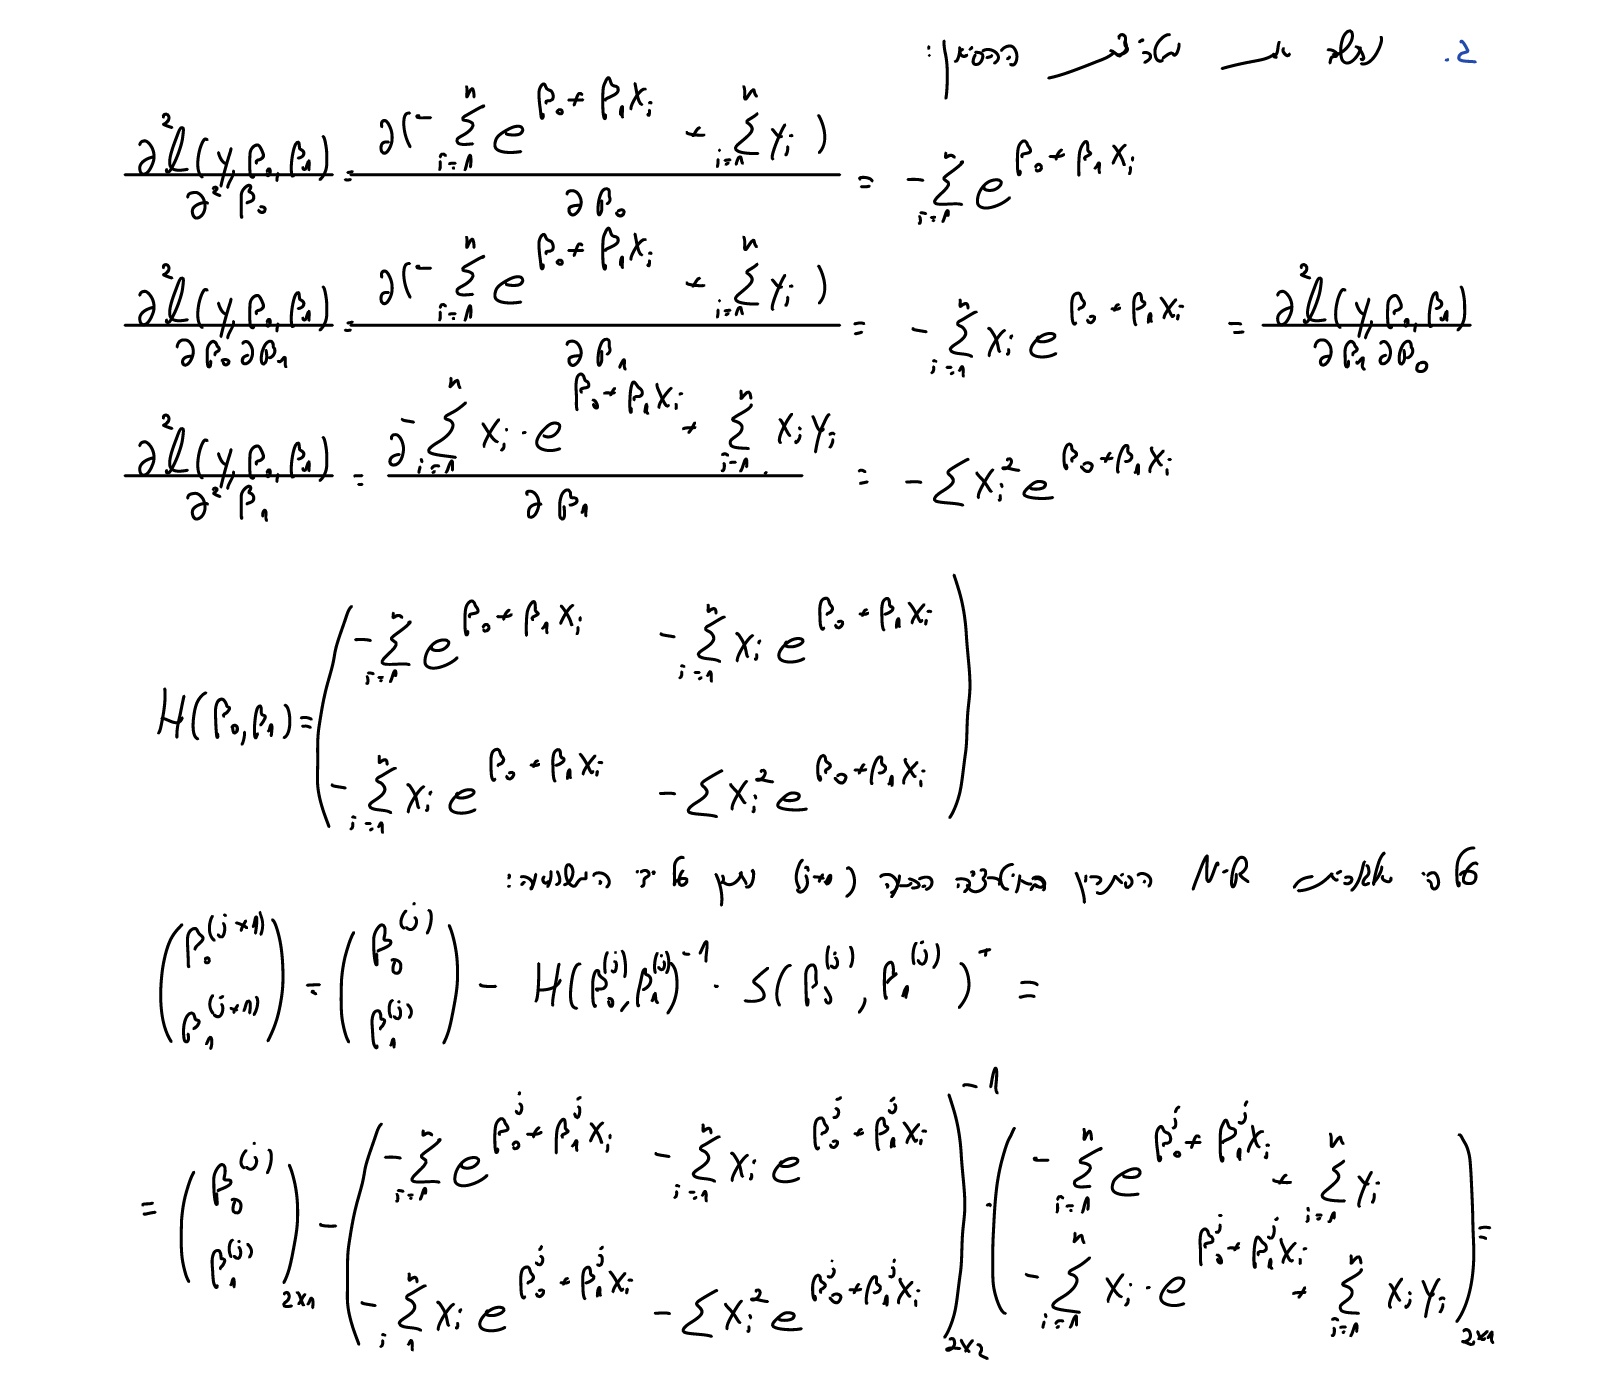 2. נמצא את מטריצת ההסיאן:
∂²ℓ(y, β₀, β₁) / ∂²β₀ = ∂(-∑_{i=1}^{n} e^{β₀+β₁x_i} + ∑_{i=1}^{n} y_i) / ∂β₀ = -∑_{i=1}^{n} e^{β₀+β₁x_i}
∂²ℓ(y, β₀, β₁) / ∂β₀∂β₁ = ∂(-∑_{i=1}^{n} e^{β₀+β₁x_i} + ∑_{i=1}^{n} y_i) / ∂β₁ = -∑_{i=1}^{n} x_i e^{β₀+β₁x_i} = ∂²ℓ(y, β₀, β₁) / ∂β₁∂β₀
∂²ℓ(y, β₀, β₁) / ∂²β₁ = ∂ -∑_{i=1}^{n} x_i · e^{β₀+β₁x_i} + ∑_{i=1}^{n} x_i y_i / ∂β₁ = -∑ x_i² e^{β₀+β₁x_i}
H(β₀, β₁) = ( -∑_{i=1}^{n} e^{β₀+β₁x_i}   -∑_{i=1}^{n} x_i e^{β₀+β₁x_i} ; -∑_{i=1}^{n} x_i e^{β₀+β₁x_i}   -∑ x_i² e^{β₀+β₁x_i} )
על פי N-R הפתרון באיטרציה הבאה (j+1) נתון על ידי המשוואה:
( β₀^{(j+1)} ; β₁^{(j+1)} ) = ( β₀^{(j)} ; β₁^{(j)} ) - H(β₀^{(j)}, β₁^{(j)})^{-1} · S(β₀^{(j)}, β₁^{(j)})^{T} =
= ( β₀^{(j)} ; β₁^{(j)} )_{2x1} - ( -∑_{i=1}^{n} e^{β₀^j+β₁^j x_i}   -∑_{i=1}^{n} x_i e^{β₀^j+β₁^j x_i} ; -∑_{i=1}^{n} x_i e^{β₀^j+β₁^j x_i}   -∑ x_i² e^{β₀^j+β₁^j x_i} )^{-1}_{2x2} · ( -∑_{i=1}^{n} e^{β₀^j+β₁^j x_i} + ∑_{i=1}^{n} y_i ; -∑_{i=1}^{n} x_i · e^{β₀^j+β₁^j x_i} + ∑_{i=1}^{n} x_i y_i )_{2x1} =